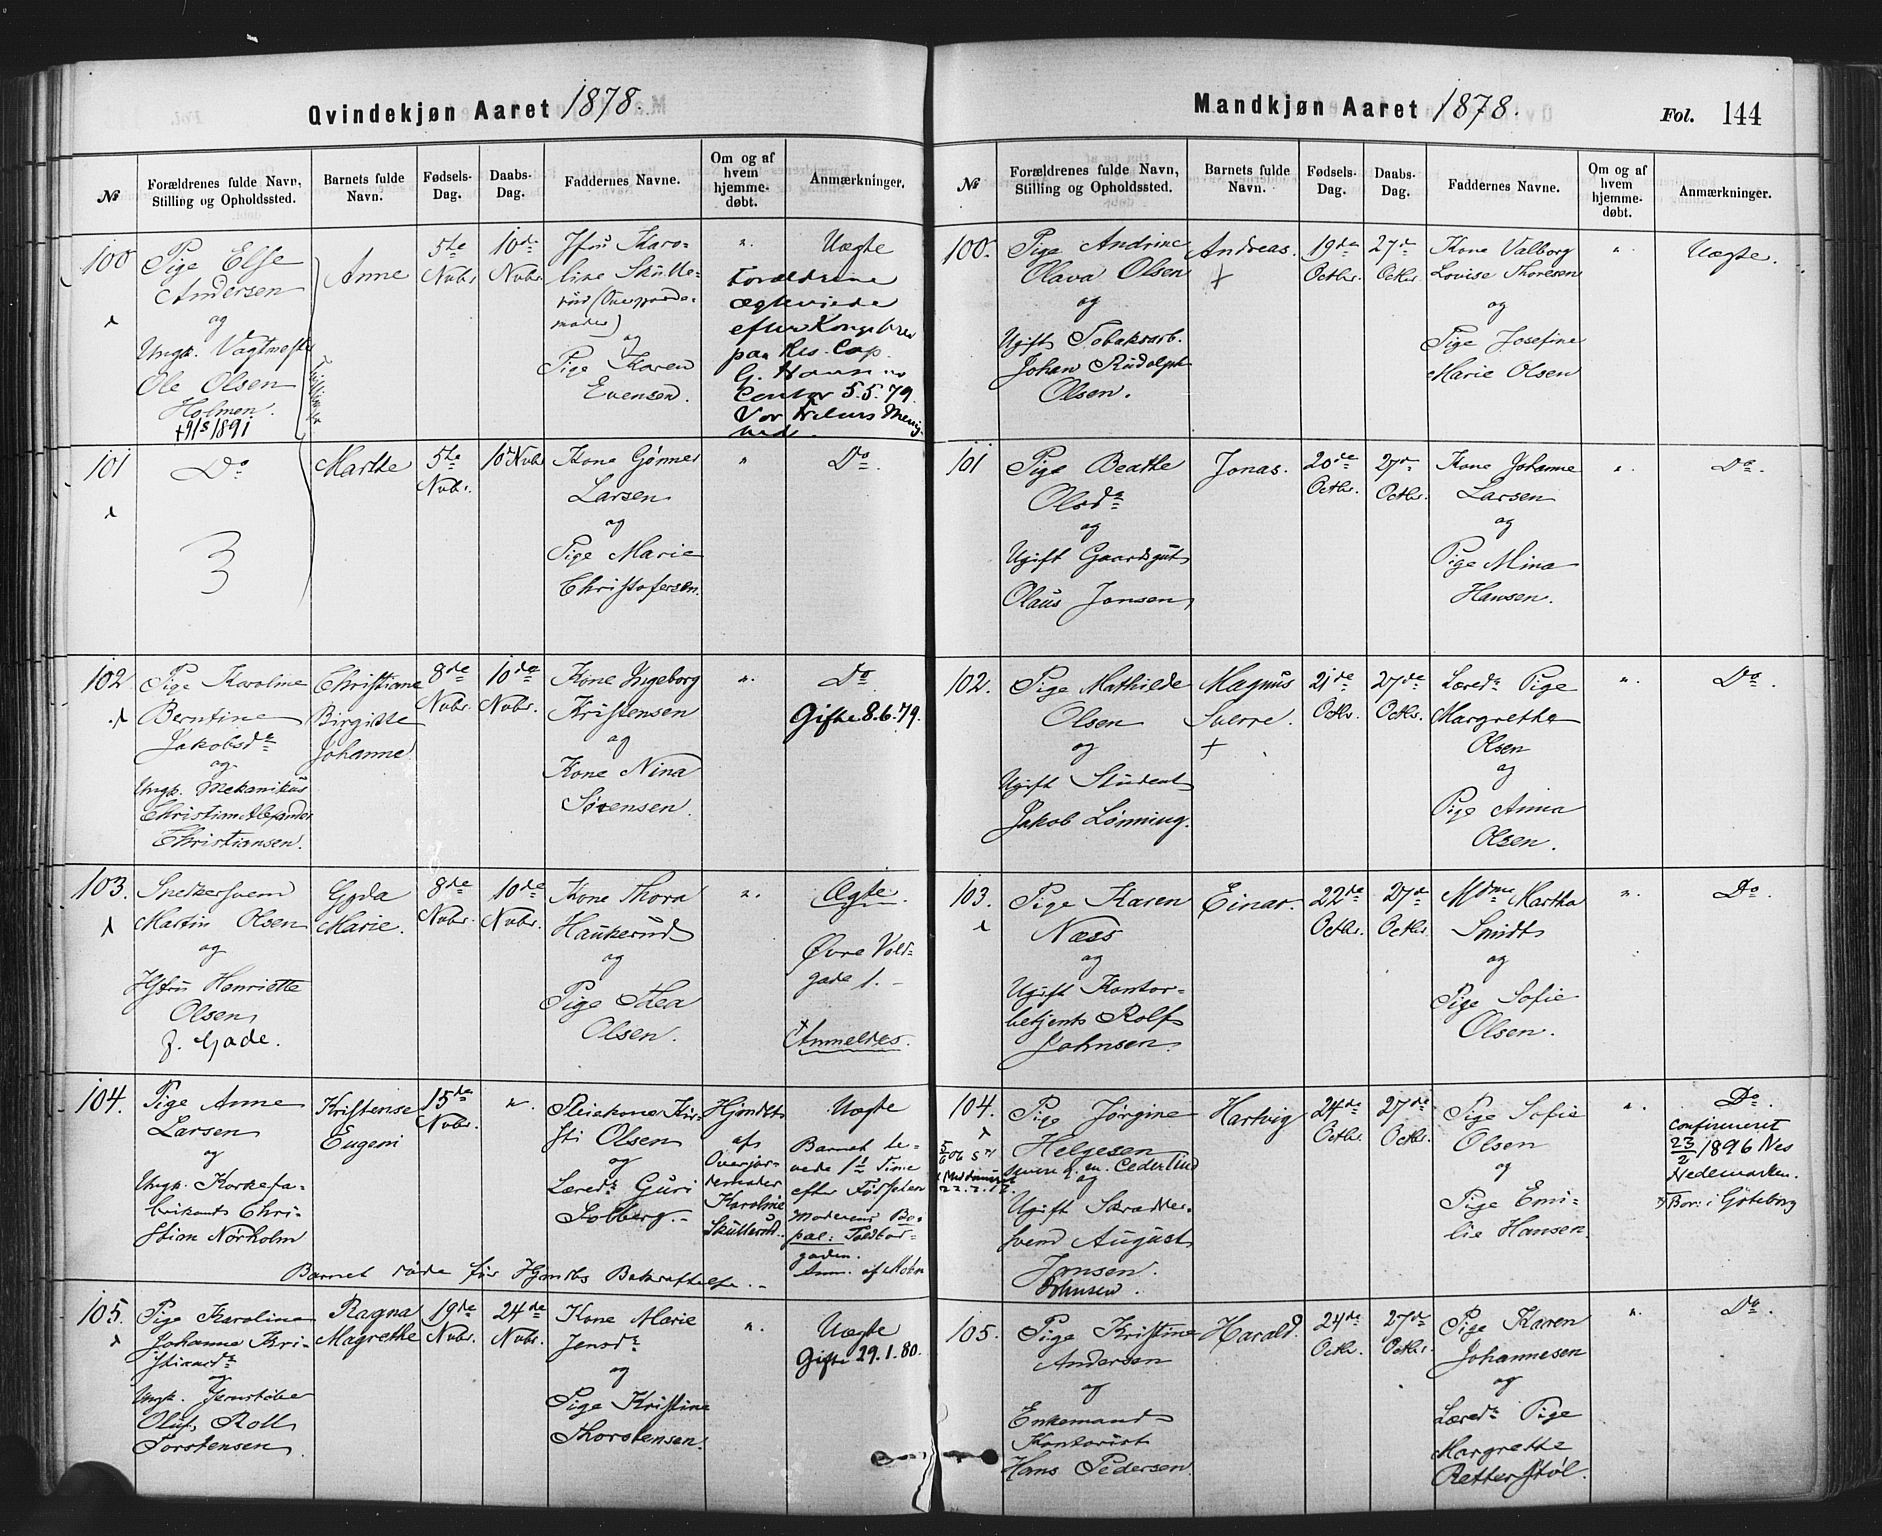 Qvindekjøn Aaret 1878.
№
Forældrenes fulde Navn, Stilling og Opholdssted.
Barnets fulde Navn.
Fødsels-Dag.
Daabs-Dag.
Faddernes Navne.
Om og af hvem hjemme-døbt.
Anmærkninger.
100
Pige Else
Andersen
og
Ungk. Vagtmester
Ole Olsen
Holmen.
Anne
5te
Nvbr
10de
Nvbr.
Jfru Karo-
line Skulle-
rud
og
Pige Karen
Evensen.
"
Uægte
Forældrene
ægteviede
efter Kongebrev
paa Res. Cap.
G.
Contor 5.5.79.
Vor Frelsers Menig-
hed.
101
Do
3
Marthe
5te
Nvbr.
10 Nvbr
Kone Gønner
Larsen
og
Pige Marie
Christofersen.
"
Do.
102
Pige Karoline
Berntine
Jakobsda
og
Ungk. Mekanikus
Christian Alexander
Christiansen.
Christiane
Birgitte
Johanne
8de
Nvbr.
10de
Nvbr.
Kone Ingeborg
Kristensen
og
Kone Nina
Sørensen.
"
Do
Gifte 8.6.79.
103.
Snekkersvend
Martin Olsen
og
Hstru Henriette
Olsen
f. Gade.
Gyda
Marie.
8de
Nvbr.
10de
Nvbr.
Kone Thora
Haukerud
og
Pige Thea
Olsen.
"
Ægte.
Øvre Vold-
gade 1.
Anmeldes.
104.
Pige Anne
Larsen
og
Ungk. Korkefa-
brikant Chri-
stian Nörholm
Kristense
Eugeni
15de
Nvbr.
"
Pleiekone Kir-
sti Olsen
og
Læreda Guri
Solberg.
Hjmdbt
af
Overjor-
demoder
Karoline
Skullerud.
Uægte
Barnet le-
vede 1 Time
efter Fødselen
Moderens Bo-
pæl: Toldbod-
gaden.
Anm. af Moren
Barnet døde før Hjmdbs Bekræftelse.
105.
Pige Karoline
Johanne Kri-
stiansda
og
Ungk. Jernstøber
Oluf Roll
Torstensen.
Ragna
Magrethe
19de
Nvbr.
24de
Nvbr.
Kone Marie
Jensda
og
Pige Kristine
Thorstensen.
"
Uægte
Gifte 29.1.80.
Mandkjøn Aaret 1878.
Fol. 144
№
Forældrenes fulde Navn, Stilling og Opholdssted.
Barnets fulde Navn.
Fødsels-Dag.
Daabs-Dag.
Faddernes Navne.
Om og af hvem hjemme-døbt.
Anmærkninger.
100.
Pige Andrine
Olava Olsen
og
Ugift Tobaksarb.
Johan Rudolph
Olsen.
Andreas.
+
19de
Octbr.
27de
Octbr
Kone Valborg
Lovise Thoresen
og
Pige Josefine
Marie Olsen
"
Uægte.
101
Pige Beathe
Olsda
og
Ugift Gaardsgut
Olaus Jonsen
Jonas.
20de
Octbr.
27de
Octbr.
Kone Johanne
Larsen
og
Pige Mina
Hansen.
"
Do.
102.
Pige Mathilde
Olsen
og
Ugift Student
Jakob Lönning.
Magnus
Sverre.
+
21de
Octbr.
27de
Octbr.
Læreda Pige
Margrethe
Olsen
og
Pige Anna
Olsen.
"
Do.
103.
Pige Karen
Næss
og
Ugift Kontor-
betjent Rolf
Johnsen.
Einar.
22de
Octbr.
27de
Octbr.
Mdme Martha
Smidt
og
Pige Sofie
Olsen.
"
Do
104.
Pige Jørgine
Helgesen
senere g. m. Cederlind
og
Ugift Skrædder-
svend August
Jonsen.
Johnsen.
Hartvig
24de
Octbr.
27de
Octbr.
Pige Sofie
Olsen
og
Pige Emi-
lie Hansen.
"
Do.
confirmeret
23/2 1896 Nes
Hedemarken.
Bor i Göteborg
105.
Pige Kristine
Andersen
og
Enkemand
Kontorist
Hans Pedersen.
Harald.
24de
Octbr.
27de
Octbr.
Pige Karen
Johannesen
og
Læreda Pige
Margrethe
Retterstøl.
"
Do.